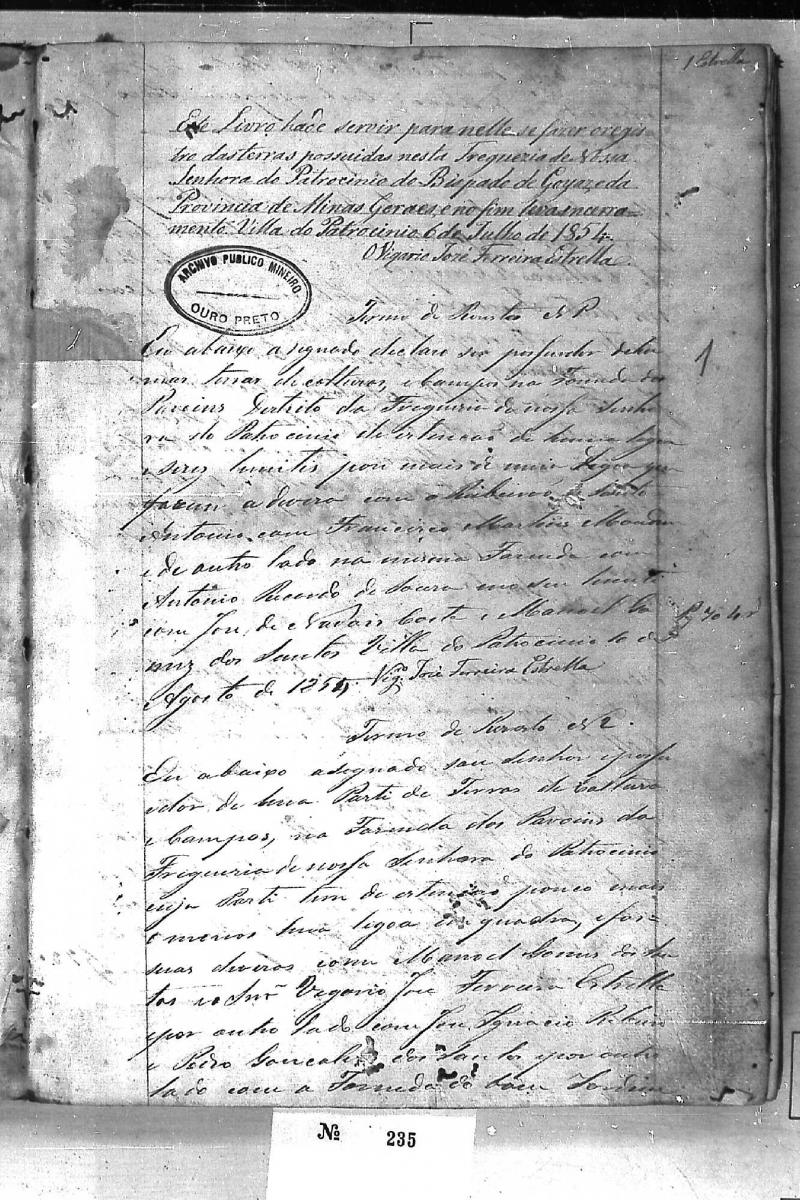 1 Estrella
Este Livro hade servir para nelle se fazer o regis-
tro das terras possuidas nesta Freguezia de Nossa
Senhora do Patrocinio do Bispado de Goyaz e da
Provincia de Minas Geraes, e no fim leva incerra-
mento. Villa do Patrocinio 6 de Julho de 1854.
O Vigario José Ferreira Estrella
ARCHIVO PUBLICO MINEIRO
OURO PRETO
Termo de
1
1
Eu abaixo asignado declaro ser
terras de culturas, e Campos na Fazenda dos
Pavoens Destrito da Freguezia de nossa Senho
ra do Patrocinio de extencaõ de
e seos limites mais de meia legoa
fazem a divera com o Ribeiraõ Santo
Antonio com Francisco Martins
e de outro lado na mesma Fazenda com
Antonio de Souza e no seu
com José de Costa e Manoel
dos Santos Villa do Patrocinio
Agosto de 1855 Vigr.o José Ferreira Estrella
Termo de N 2.
Eu abaixo asegnado sou Senhor e possu
idor de hua Parte de Terras de Cultura
e Campos, na Fazenda dos Pavoens da
Fregueria de nossa Senhora do Patrocinio
cuja Parte tem de extencaõ pouco mais
o menos hua legoa em quadra, e
suas diveras com Manoel Gomes dos
Vegario José Ferreira Estrella
e por outro lado com José Ignacio Ribeiro
e Pedro Goncalves dos Santos e por outro
lado com a Fazenda do bom Jardim
Nº 235